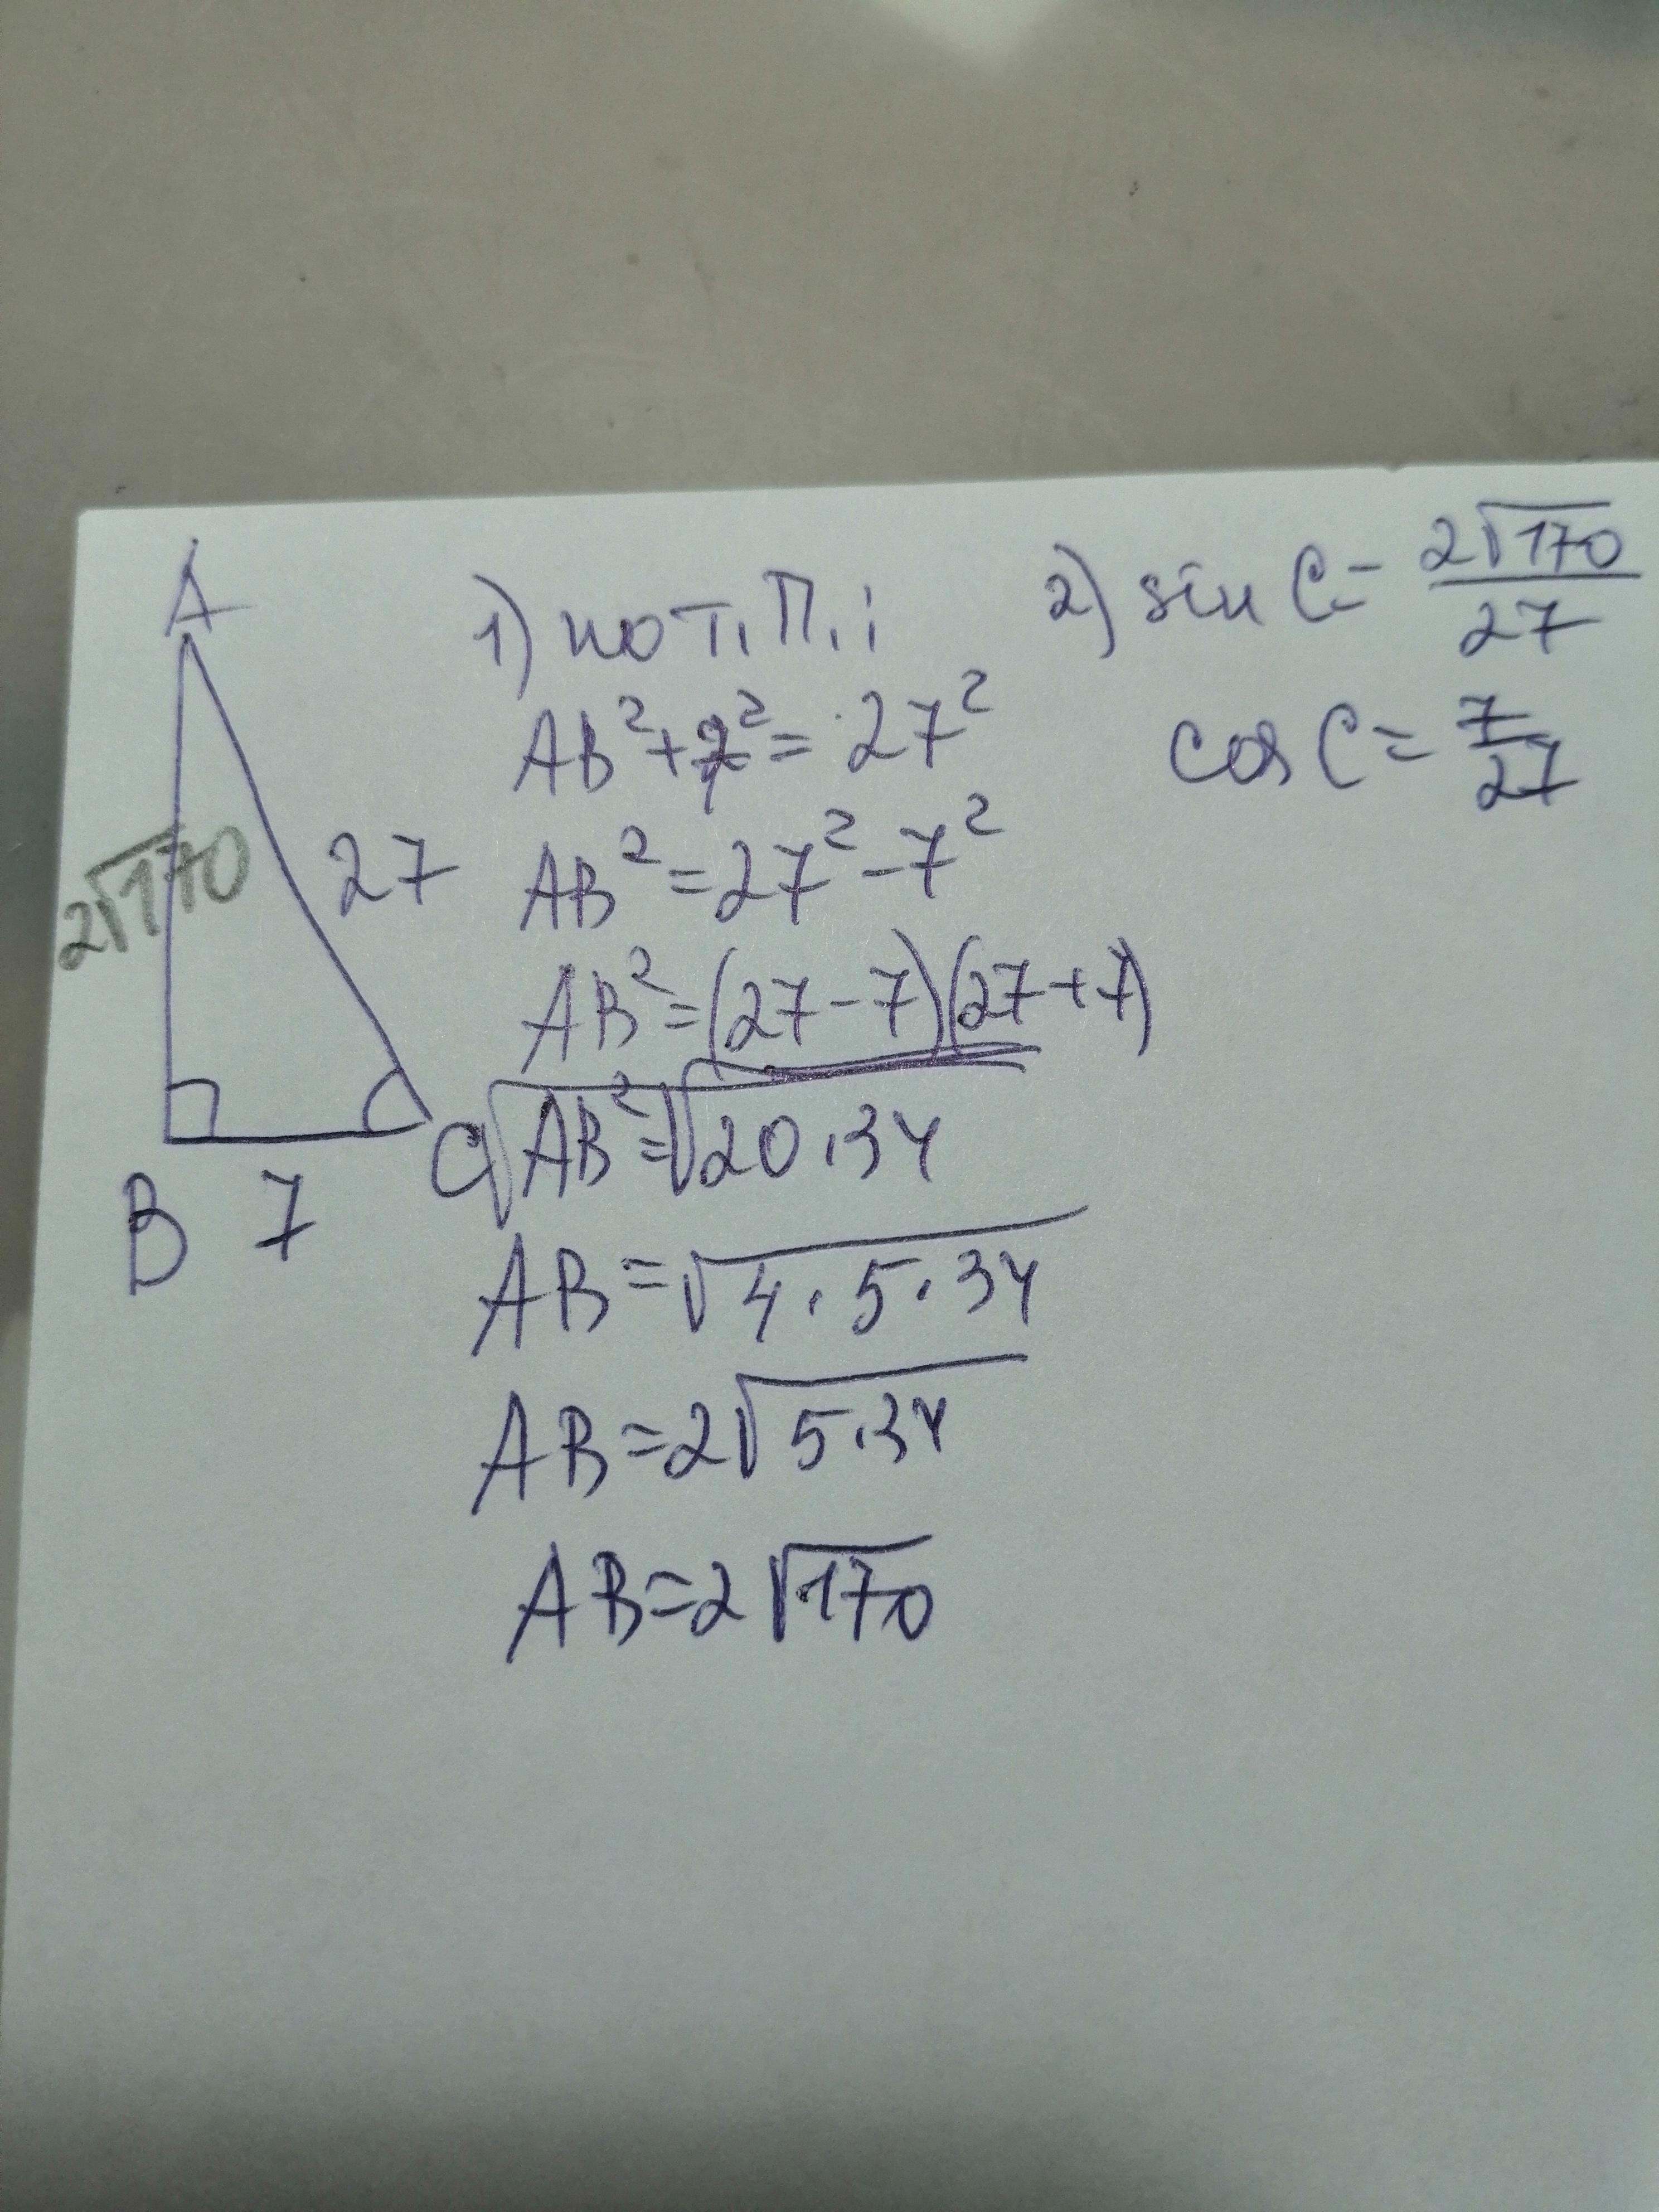 A
2√170
27
B
7
C
1) по т. П.:
AB²+7²=27²
AB²=27²-7²
AB²=(27-7)(27+7)
√AB²=√20·34
AB=√4·5·34
AB=2√5·34
AB=2√170
2) sin C=2√170/27
cos C=7/27